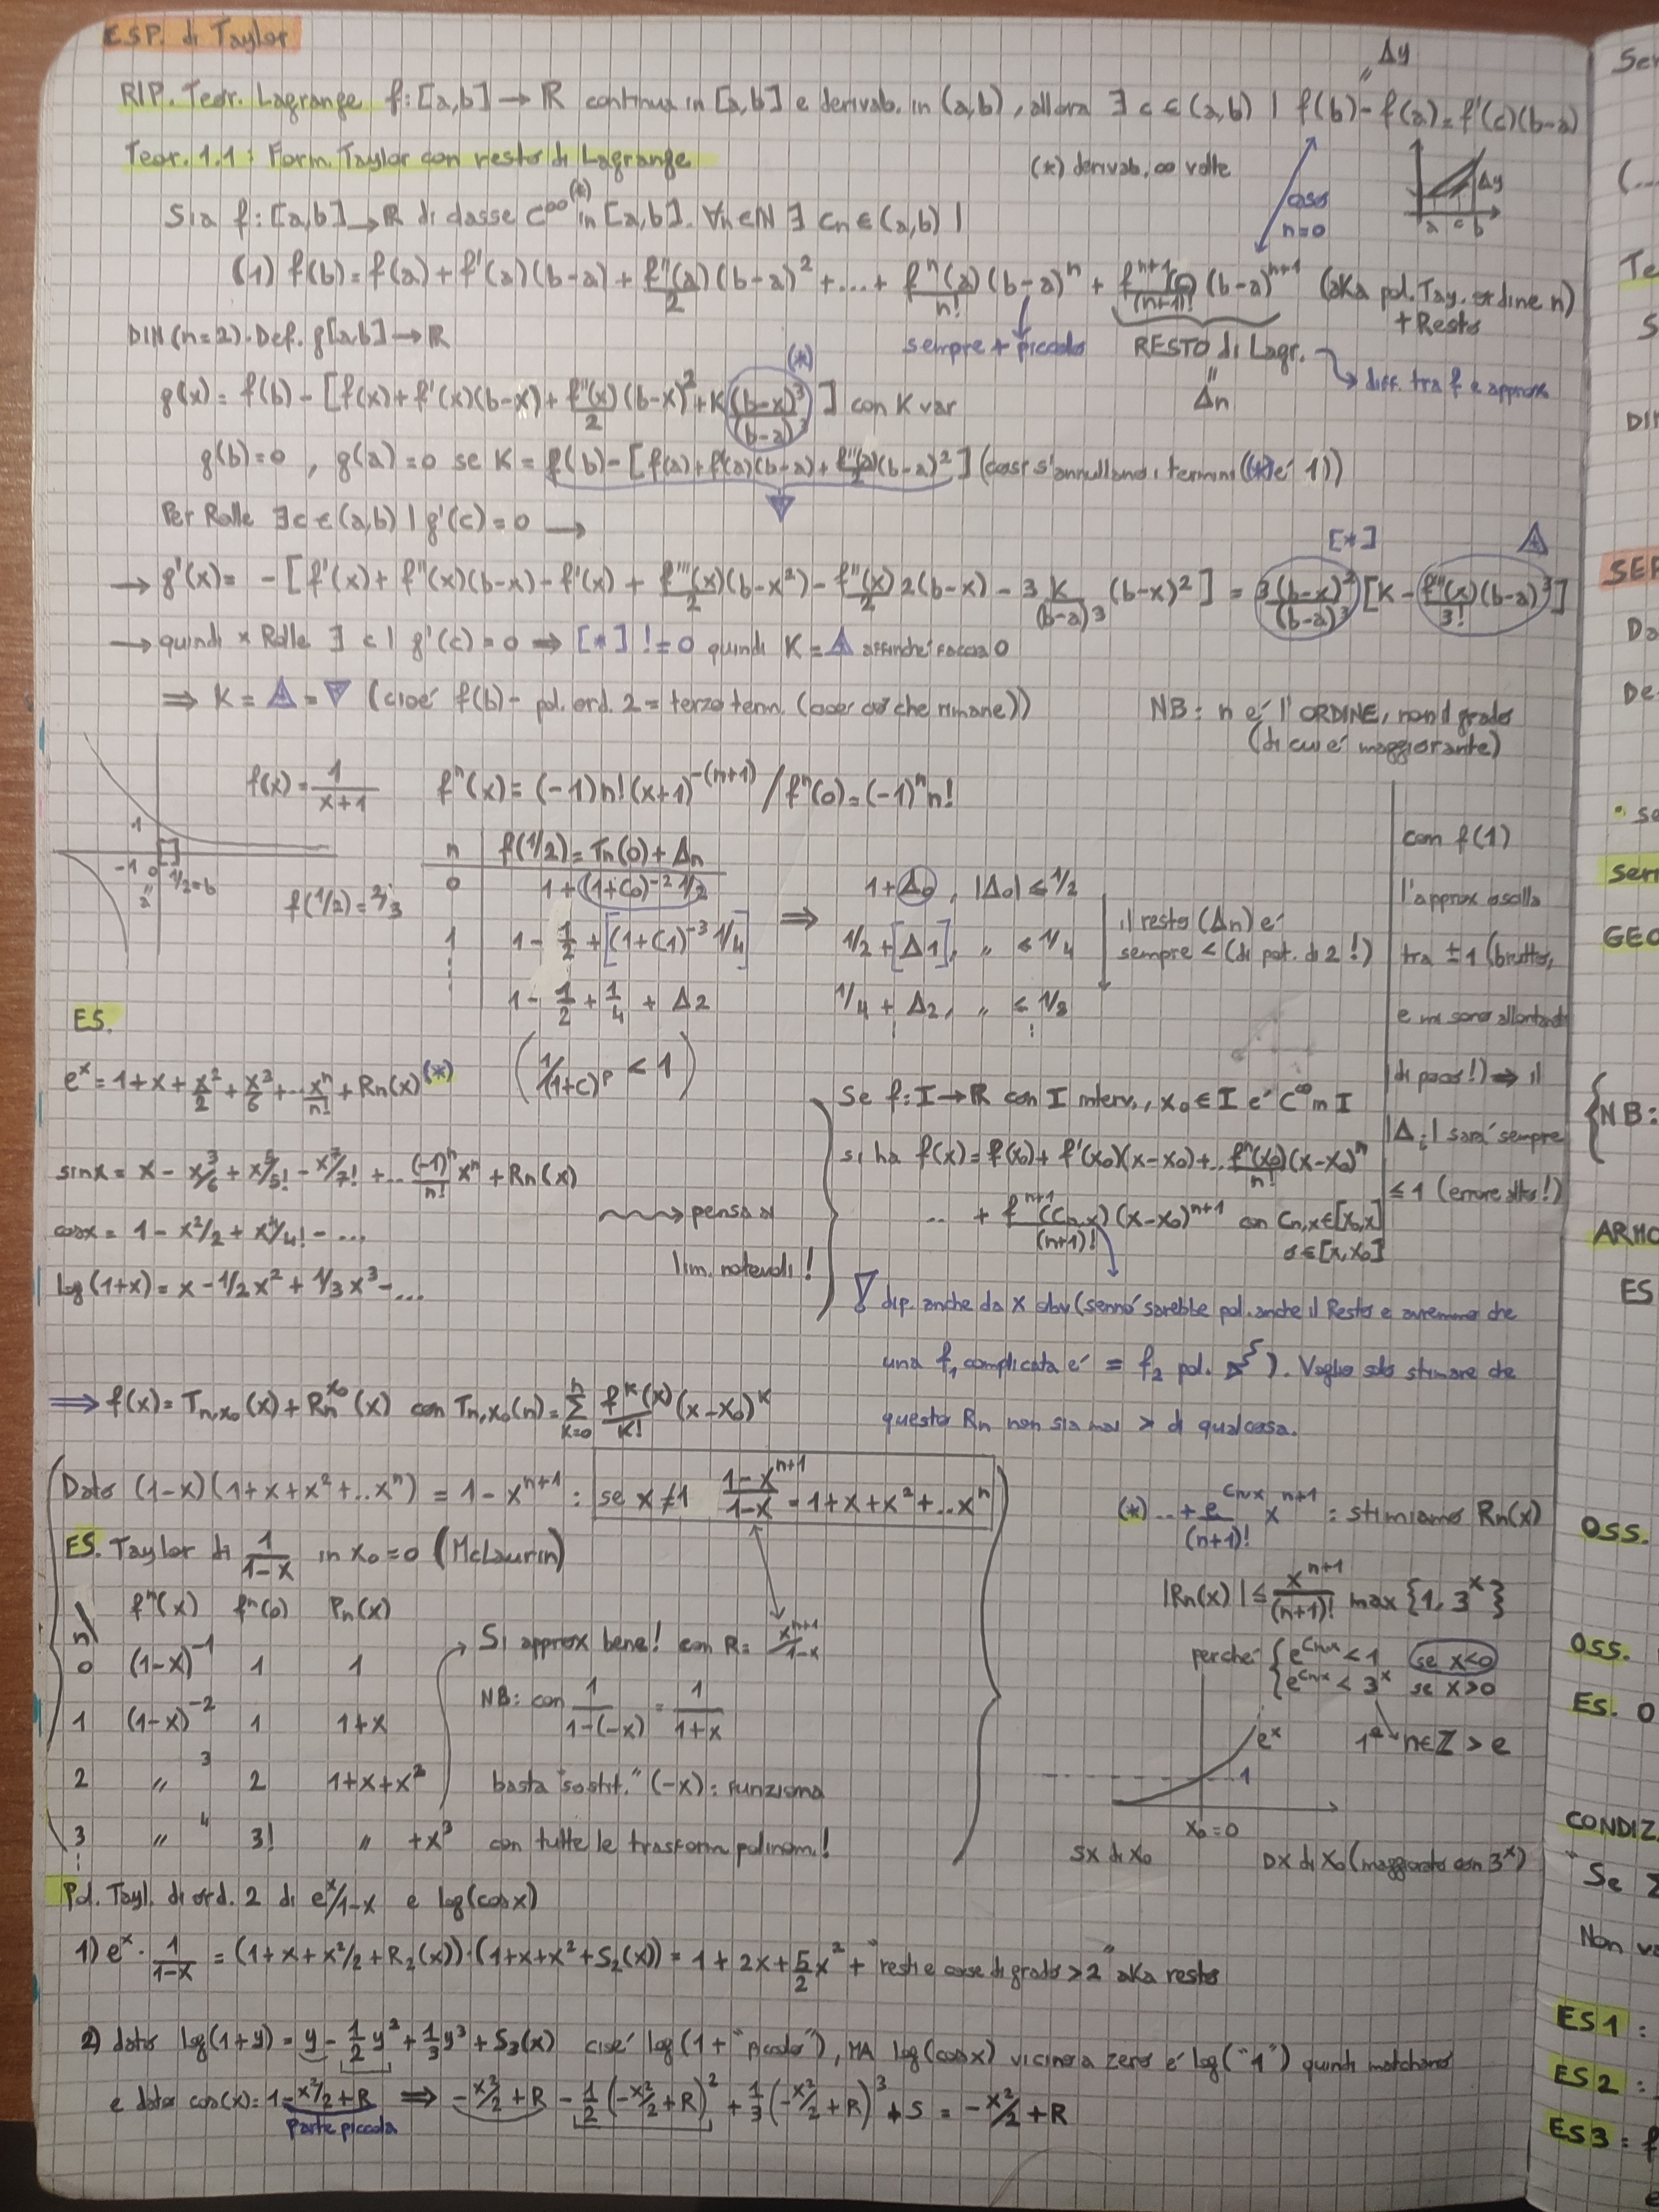 ESP. di Taylor
Δy
RIP. Teor. Lagrange f:[a,b] → ℝ continua in [a,b] e derivab. in (a,b), allora ∃ c ∈ (a,b) | f(b) - f(a) = f'(c)(b-a)
Teor. 1.1: Form. Taylor con resto di Lagrange
(*) derivab. ∞ volte
Sia f:[a,b] → ℝ di classe C^∞ (*) in [a,b]. ∀n∈ℕ ∃ Cn ∈ (a,b) |
caso n=0
Δy
a c b
(1) f(b) = f(a) + f'(a)(b-a) + f''(a)/2 (b-a)^2 + ... + f^n(a)/n! (b-a)^n + f^{n+1}(c)/(n+1)! (b-a)^{n+1} (aka pol. Tay. ordine n) + Resto
DIM (n=2). Def. g[a,b] → ℝ
sempre + piccolo
RESTO di Lagr. → diff. tra f e approx
"
Δn
g(x) = f(b) - [f(x) + f'(x)(b-x) + f''(x)/2 (b-x)^2 + K (b-x)^3/(b-a)^3 (*)] con K var
g(b)=0, g(a)=0 se K = f(b) - [f(a) + f'(a)(b-a) + f''(a)/2 (b-a)^2] (così s'annullano i termini ((*) é 1))
▽
Per Rolle ∃c∈(a,b) | g'(c)=0 →
[*] △
→ g'(x) = -[f'(x) + f''(x)(b-x) - f'(x) + f'''(x)/2 (b-x^2) - f''(x)/2 2(b-x) - 3 K/(b-a)^3 (b-x)^2] = 3(b-x)^2/(b-a)^3 [K - f'''(x)/3! (b-a)^3]
→ quindi x Rolle ∃ c | g'(c)=0 ⇒ [*] != 0 quindi K = △ affinché faccia 0
⇒ K = △ = ▽ (cioé f(b) - pol. ord. 2 = terzo term. (cioé ciò che rimane))
NB: n é l'ORDINE, non il grado
(di cui é maggiorante)
f(x) = 1/(x+1)
f^n(x) = (-1)n!(x+1)^{-(n+1)} / f^n(0) = (-1)^n n!
1
-1 0 1/2=b
"
a
f(1/2) = 2/3
n | f(1/2) = Tn(0) + Δn
0 | 1 + (1+C0)^{-2} 1/2 ⇒ 1 + Δ0, |Δ0| ≤ 1/2
1 | 1 - 1/2 + [(1+C1)^{-3} 1/4] 1/2 + [Δ1], " ≤ 1/4
⋮ | 1 - 1/2 + 1/4 + Δ2 1/4 + Δ2, " ≤ 1/8
(1/(1+c)^p < 1)
il resto (Δn) é
sempre < (di pot. di 2!)
con f(1)
l'approx oscilla
tra ±1 (brutto,
e mi sono allontanato
di poco!) ⇒ il
|Δi| sará sempre
≤ 1 (errore alto!)
ES.
e^x = 1 + x + x^2/2 + x^3/6 + ... x^n/n! + Rn(x) (*)
sinx = x - x^3/6 + x^5/5! - x^7/7! + ... (-1)^n/n! x^n + Rn(x)
cosx = 1 - x^2/2 + x^4/4! - ...
log(1+x) = x - 1/2 x^2 + 1/3 x^3 - ...
→ pensa ai
lim. notevoli!
Se f: I → ℝ con I interv., x0 ∈ I é C^∞ in I
si ha f(x) = f(x0) + f'(x0)(x-x0) + .. f^n(x0)/n! (x-x0)^n
.. + f^{n+1}(Cn,x)/(n+1)! (x-x0)^{n+1} con Cn,x ∈ [x0,x]
o ∈ [x,x0]
! dip. anche da x obv (sennó sarebbe pol. anche il Resto e avremmo che
una f1 complicata é = f2 pol. ). Voglio solo stimare che
questo Rn non sia mai > di qualcosa.
⇒ f(x) = Tn,x0(x) + Rn^{x0}(x) con Tn,x0(n) = Σ_{k=0}^{n} f^k(x)/k! (x-x0)^k
Dato (1-x)(1+x+x^2+..x^n) = 1-x^{n+1} : se x≠1 (1-x^{n+1})/(1-x) = 1+x+x^2+..x^n
ES. Taylor di 1/(1-x) in x0=0 (McLaurin)
n f^n(x) f^n(0) Pn(x)
0 (1-x)^{-1} 1 1
1 (1-x)^{-2} 1 1+x
2 " 3 2 1+x+x^2
3 " 4 3! " +x^3
⋮
Si approx bene! con R = x^{n+1}/(1-x)
NB: con 1/(1-(-x)) = 1/(1+x)
basta "sostit." (-x): funziona
con tutte le trasform. polinom.!
(*) .. + e^{Cn,x}/(n+1)! x^{n+1} : stimiamo Rn(x)
|Rn(x)| ≤ x^{n+1}/(n+1)! max {1, 3^x}
perché { e^{Cn,x} < 1 se x<0
{ e^{Cn,x} < 3^x se x>0
1° n∈ℤ > e
e^x
1
x0=0
SX di x0
DX di x0 (maggiorato con 3^x)
Pol. Tayl. di ord. 2 di e^x/1-x e log(cosx)
1) e^x · 1/(1-x) = (1+x+x^2/2+R2(x))·(1+x+x^2+S2(x)) = 1+2x+5/2 x^2 + "resti e cose di grado >2" aka resto
2) dato log(1+y) = y - 1/2 y^2 + 1/3 y^3 + S3(x) cioé log(1+"piccolo"), MA log(cosx) vicino a zero é log("1") quindi matchano
e dato cos(x) = 1 - x^2/2 + R ⇒ -x^2/2 + R - 1/2(-x^2/2 + R)^2 + 1/3(-x^2/2 + R)^3 + S = -x^2/2 + R
Parte piccola
Ser
(...
Te
S
DIM
SER
Da
De
• se
Serie
GEO
NB:
ARMO
ES
OSS.
OSS.
ES. 0
CONDIZ.
"Se Σ
Non va
ES1:
ES2:
ES3: f